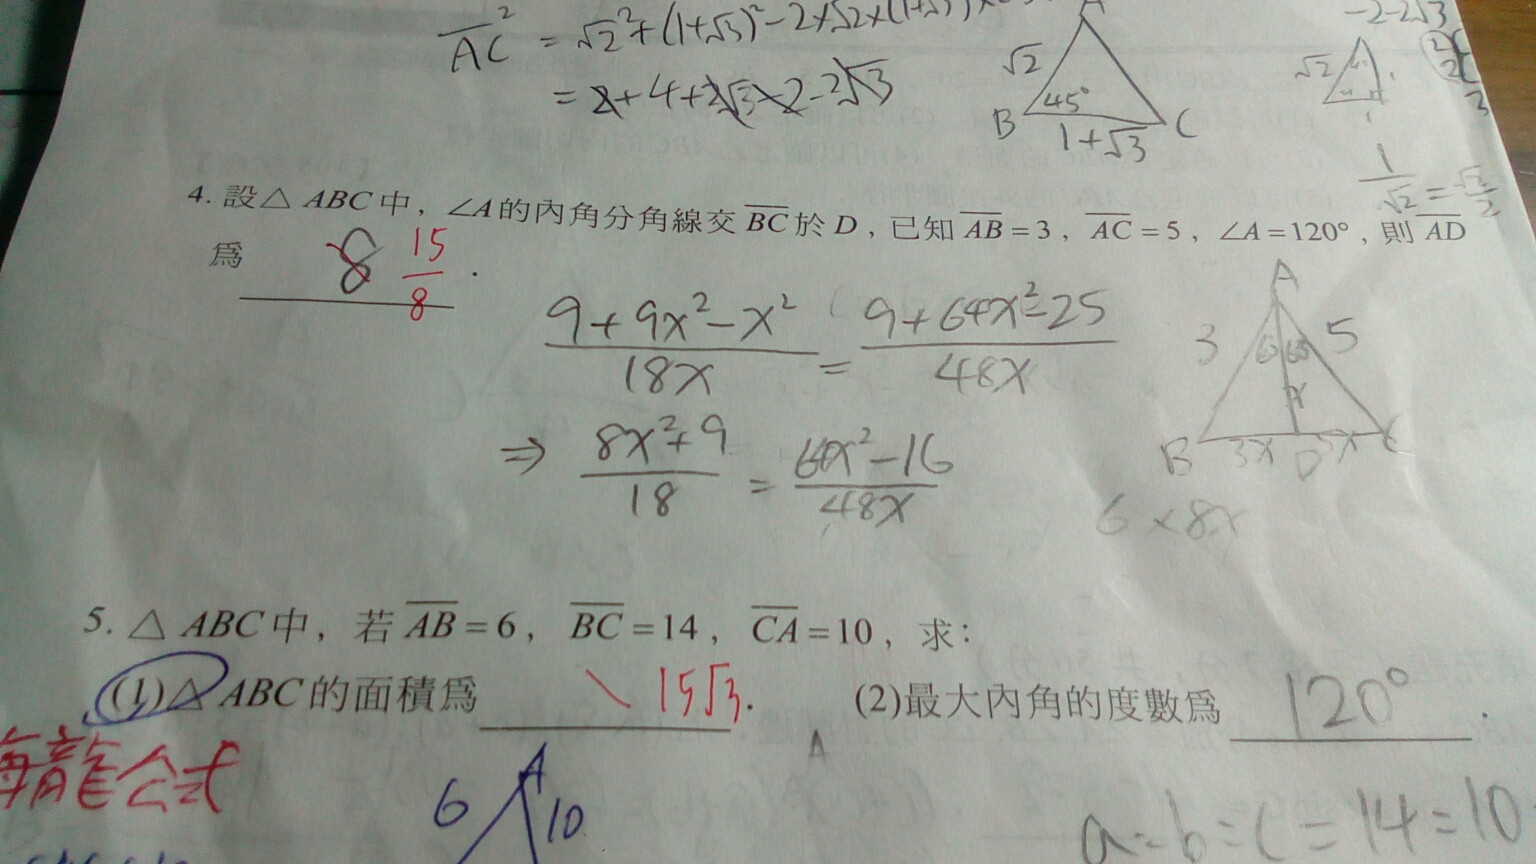 AC² = √2² + (1+√3)² - 2×√2×(1+√3)×
= 2+4+2√3-2-2√3
A
√2
45°
B
1+√3
C
-2-2√3
√2
1
1/√2 = √2/2
4. 設△ ABC 中，∠A 的內角分角線交 BC 於 D，已知 AB = 3，AC = 5，∠A = 120°，則 AD
為 8 15/8 .
(9+9x²-x²)/18x = (9+64x²-25)/48x
⇒ (8x²+9)/18 = (64x²-16)/48x
A
3
5
60
60
x
B 3x D 5x C
6×8x
5. △ ABC 中，若 AB = 6，BC = 14，CA = 10，求：
(1)△ ABC 的面積為 \ 15√3 . (2)最大內角的度數為 120° .
海龍公式
A
6
A
10
a=b=c=14=10